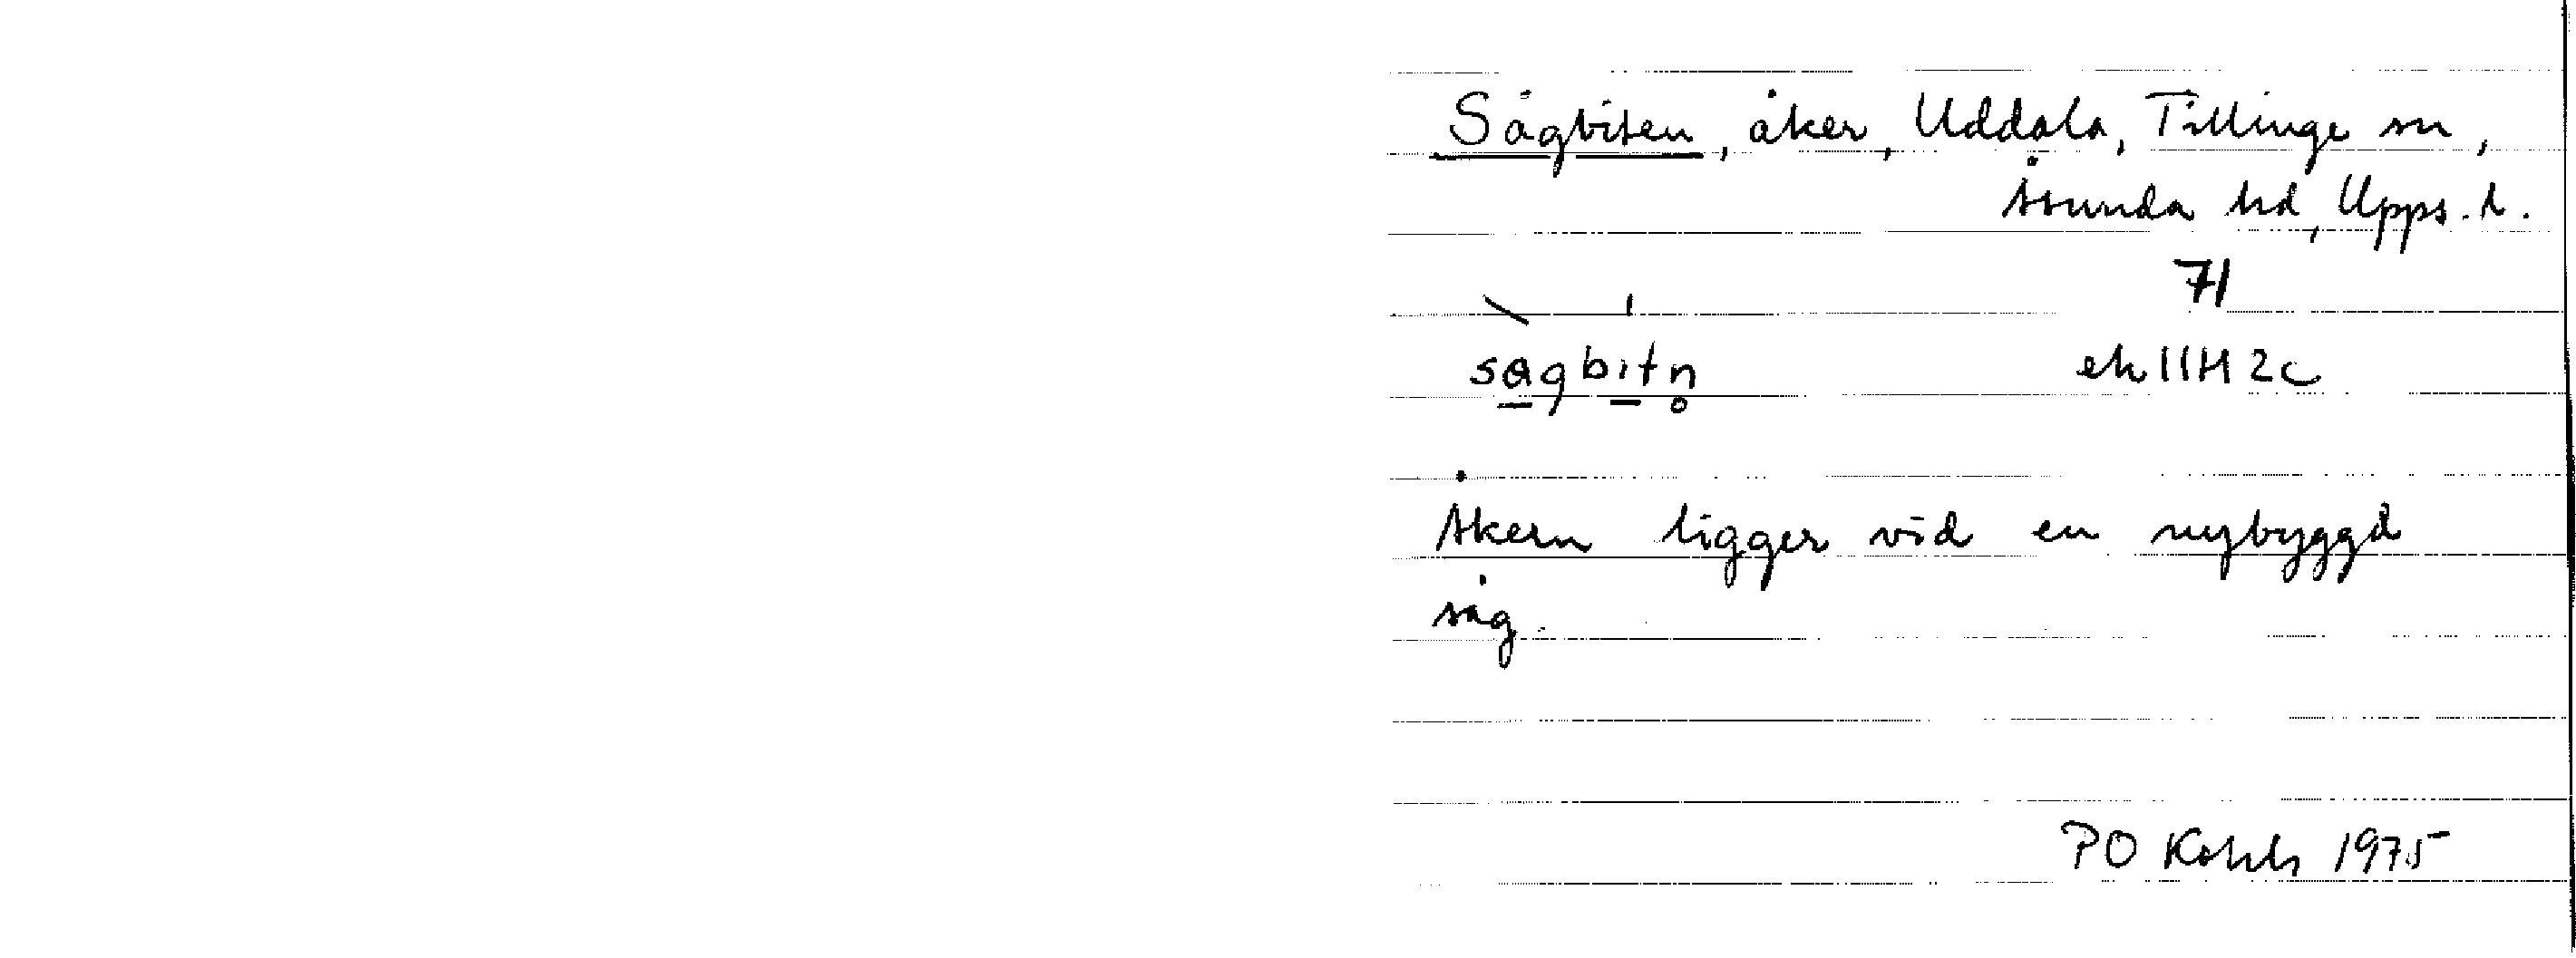 Sågbiten, åker, Uddala, Tillinge sn,
Åsunda hd, Upps. l.
71
sågbitn
ek 11H 2c
Åkern ligger vid en nybyggd
såg.
PO 1975